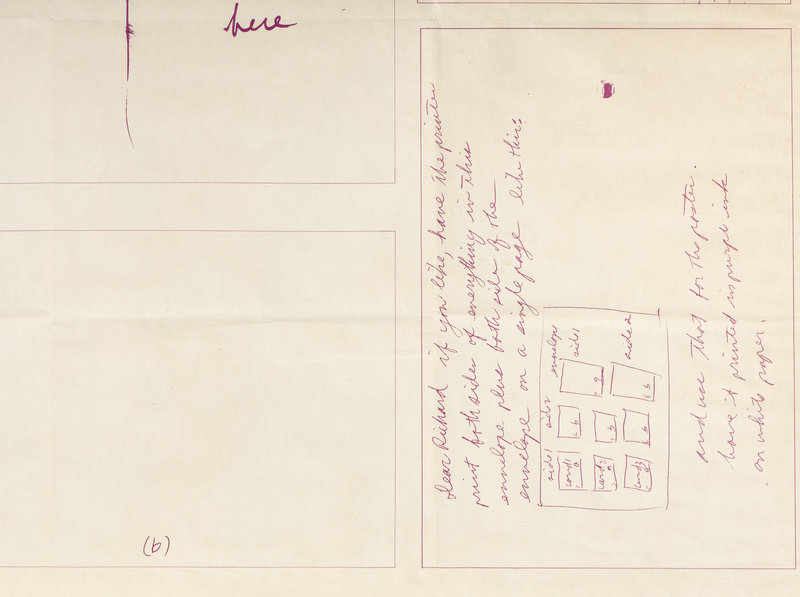 here
(b)
Dear Richard if you like, have the printer
print both sides of everything in this
envelope plus both side of the
envelope on a single page like this:
side1 side2 envelope
side1
card1 a b a
card2 a b side2
card3 a b b
and use that for the poster.
have it printed in purple ink
on white paper.